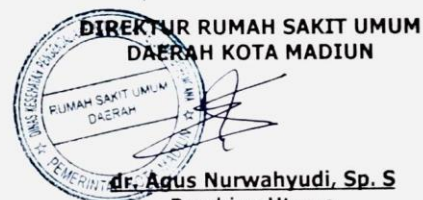 DIREKTUR RUMAH SAKIT UMUM
DAERAH KOTA MADIUN
RUMAH SAKIT UMUM
DAERAH
dr. Agus Nurwahyudi, Sp. S